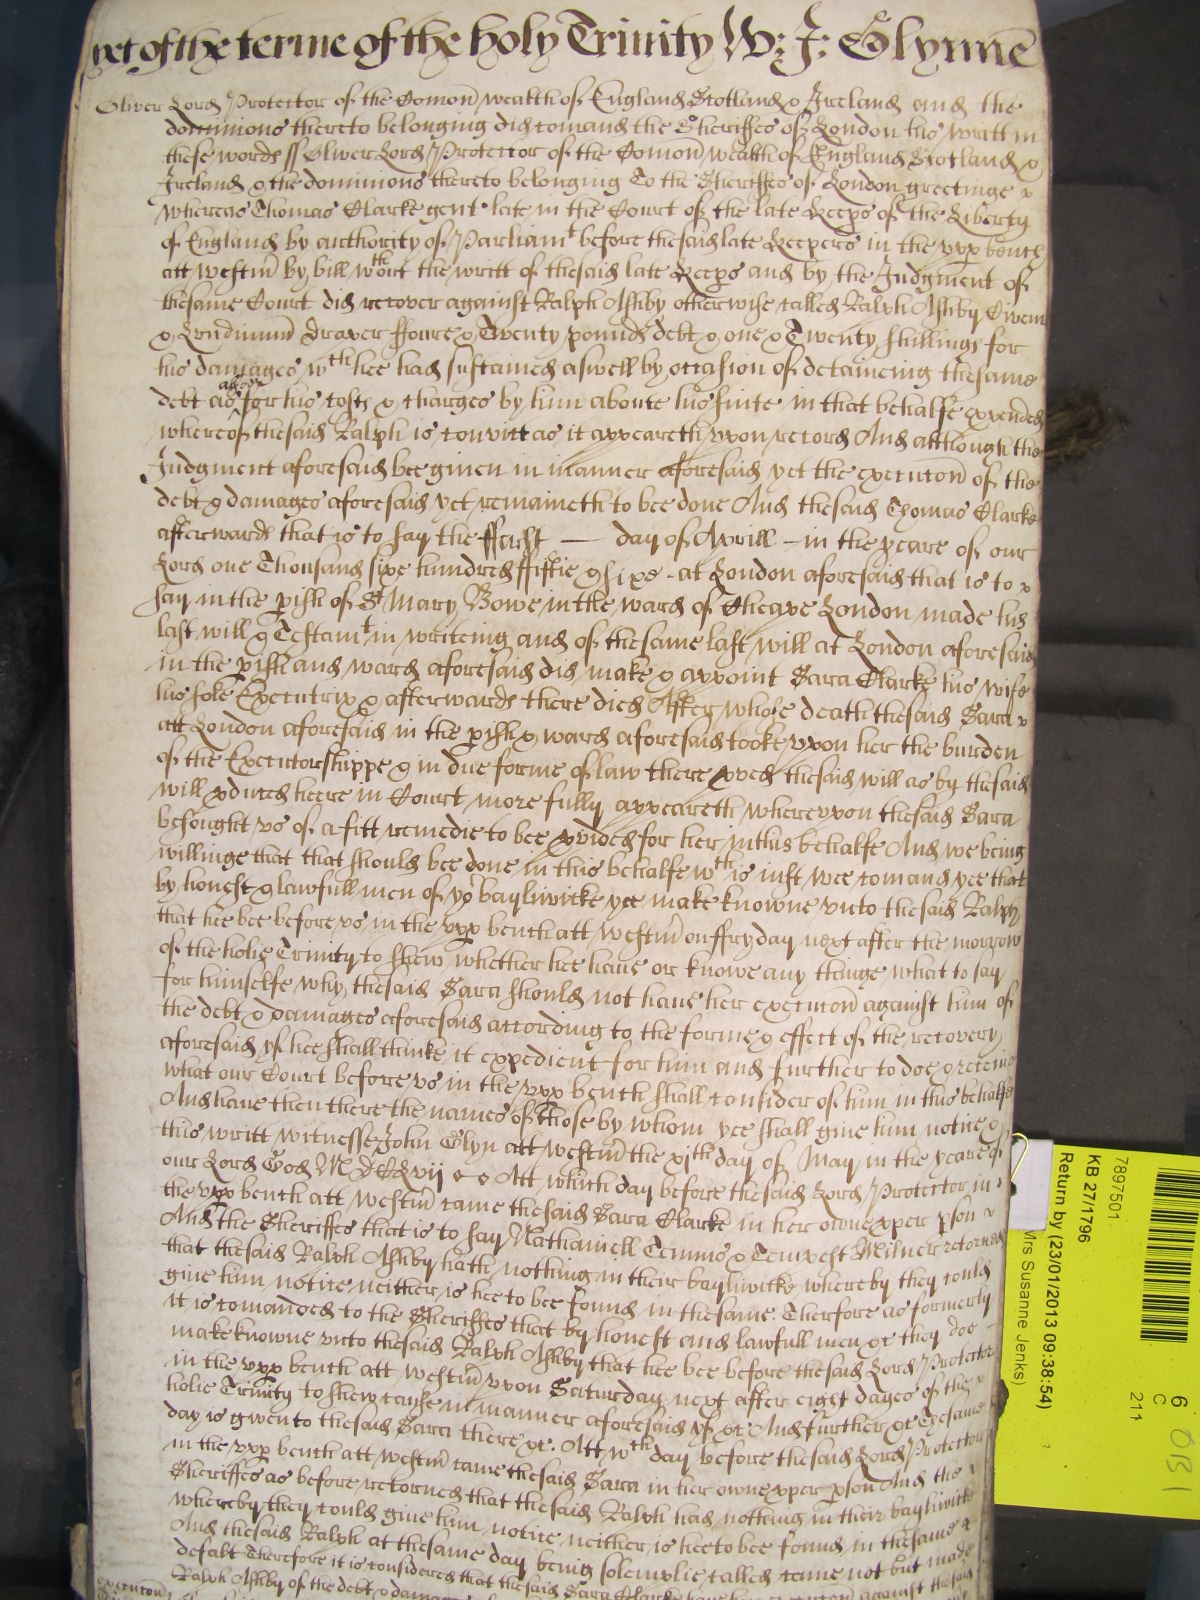 yet of the terme of the holy Trinity W: J: Glynne
Oliver Lord Protector of the Comon wealth of England Scotland & Ireland and the
dominions thereto belonging did comand the Sheriffes of London his writt in
these words ss Oliver Lord Protector of the Comon wealth of England Scotland &
Ireland & the dominions thereto belonging To the Sheriffes of London greetinge
whereas Thomas Clarke gent late in the Court of the late Keeps of the Liberty
of England by authority of Parliamt before the said late Keepers in the vpp bench
att westm by bill wthout the writt of the said late Keeps and by the Judgment of
the same Court did recover against Ralph Ashby otherwise called Ralph Ashby
& Londinum draper ffoure & Twenty pounds debt & one & Twenty shillings for
his damages wch hee had susteined aswell by occasion of detaineing the same
debt as for his costs & charges by him aboute his suite in that behalfe expended
whereof the said Ralph is convict as it appeareth vpon record And although the
Judgment aforesaid bee given in manner aforesaid yet the execucon of the
debt & damages aforesaid yet remaineth to bee done And the said Thomas Clarke
afterwards that is to say the ffirst — day of Aprill - in the yeare of our
Lord one Thousand sixe hundred ffiftie & sixe - at London aforesaid that is to
say in the pish of St Mary Bowe in the ward of Cheape London made his
last will & Testamt in writeing and of the same last will at London aforesaid
in the pish and ward aforesaid did make & appoint Sara Clarke his wife
his sole Executrix & afterwards there died After whose death the said Sara
att London aforesaid in the pish & ward aforesaid tooke vpon her the burden
of the Executorshippe & in due forme of law there pved the said will as by the said
will pduced heere in Court more fully appeareth wherevpon the said Sara
besought vs of a fitt remedie to bee pvided for her in this behalfe And we being
willinge that that should bee done in this behalfe wch is iust wee comand yee that
by honest & lawfull men of yor bayliwicke yee make knowne vnto the said Ralph
that hee bee before vs in the vpp bench att westm on ffryday next after the morrow
of the holie Trinity to shew whether hee have or knowe any thinge what to say
for himselfe why the said Sara should not have her execucon against him of
the debt & damages aforesaid according to the forme & effect of the recovery
aforesaid yf hee shall thinke it expedient for him and further to doe & receive
what our Court before vs in the vpp bench shall consider of him in this behalfe
And have then there the names of those by whom yee shall give him notice &
this writt witnesse John Glyn att westm the xjth day of May in the yeare of
our Lord God M DCLvij Att which day before the said Lord Protector in
the vpp bench att westm came the said Sara Clarke in her owne pper pson
And the Sheriffes that is to say Nathaniell Temms & Tempest Milner retorned
that the said Ralph Ashby hath nothing in their bayliwicke whereby they could
give him notice neither is hee to bee found in the same. Therfore as formerly
it is comanded to the Sheriffes that by honest and lawfull men &c they doe
make knowne vnto the said Ralph Ashby that hee bee before the said Lord Protector
in the vpp bench att westm vpon Saturday next after eight dayes of the
holie Trinity to shew cause in manner aforesaid yf &c And further &c The same
day is given to the said Sara there &c. Att wch day before the said Lord Protector
in the vpp bench att westm came the said Sara in her owne pper pson And the
Sheriffes as before retorned that the said Ralph had nothing in their bayliwicke
whereby they could give him notice neither is hee to bee found in the same &
And the said Ralph at the same day being solemnlie called came not but made
defalt Therefore it is considered that the said Sara Clarke have her execucon against the said
Ralph Ashby of the debt & damages
execucon
7897501
KB 27/1796
Return by (23/01/2013 09:38:54)
Mrs Susanne Jenks)
6
C
211